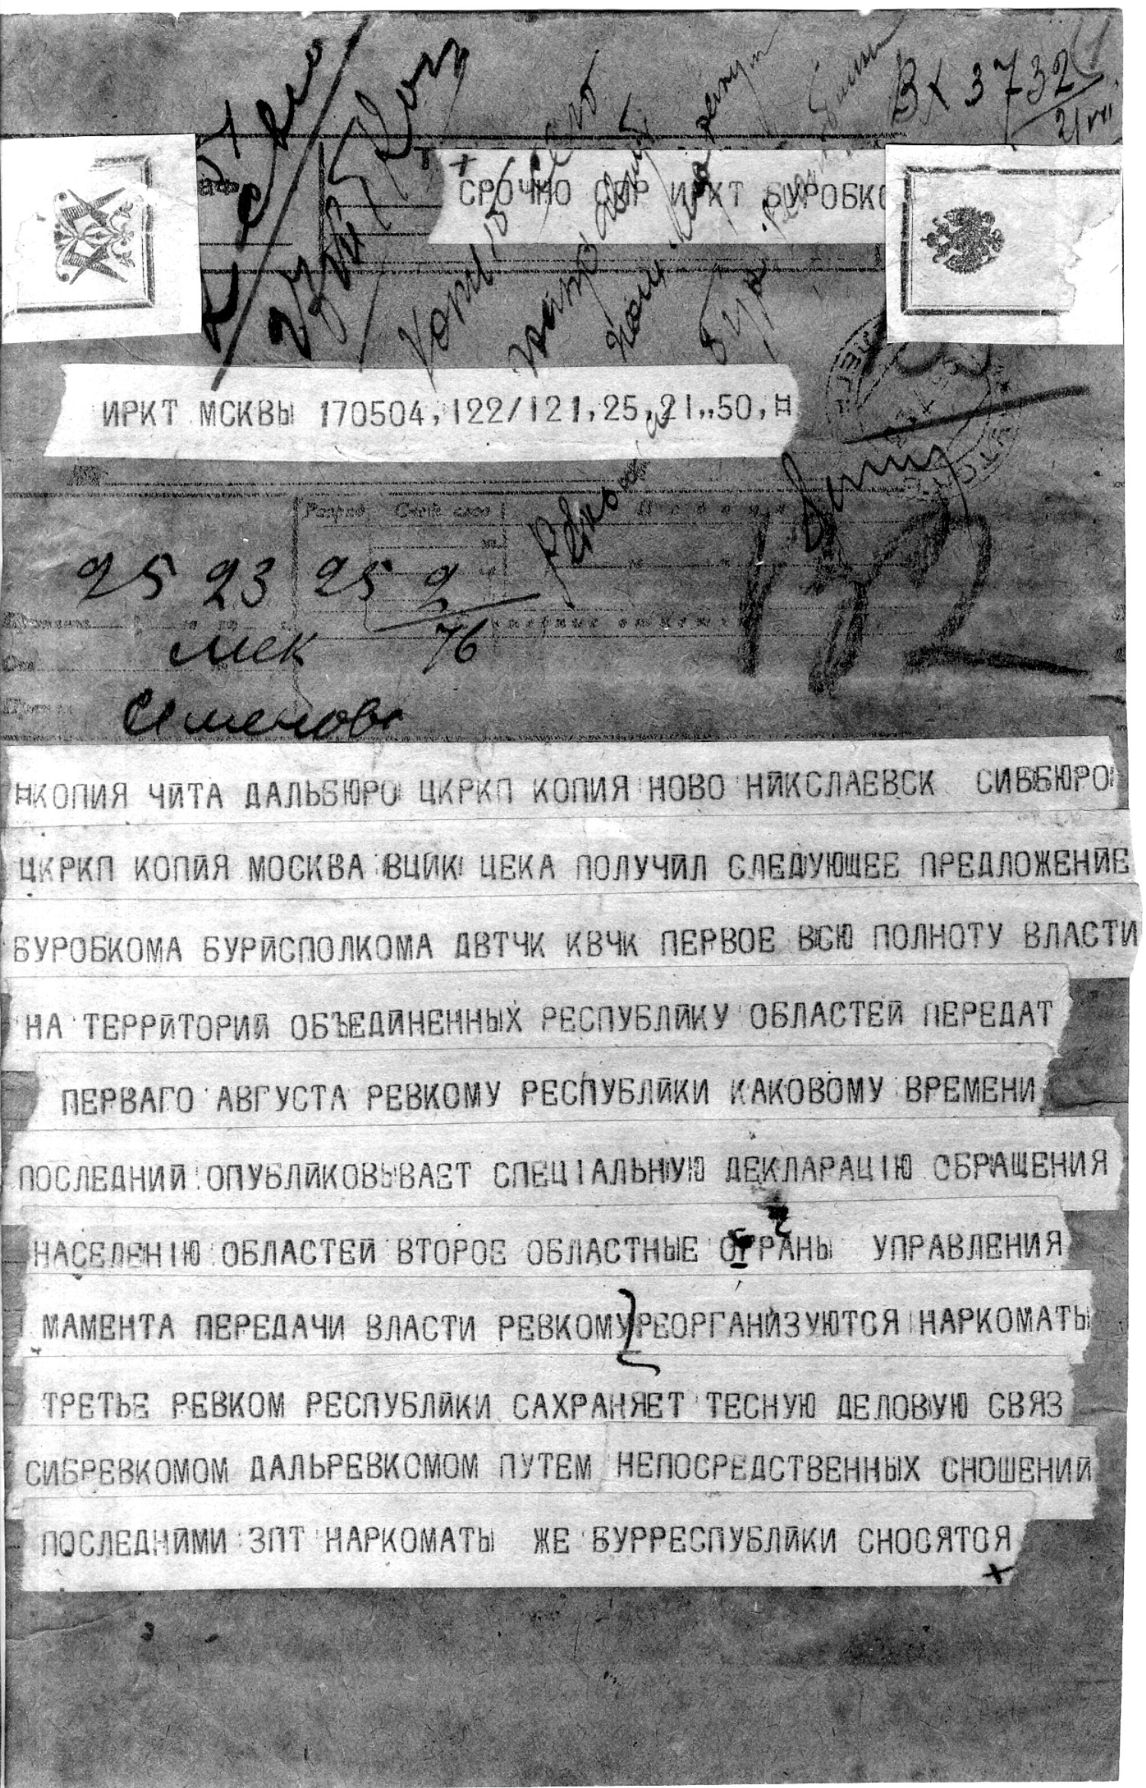 Вх 3732
2/VII
СРОЧНО СБР ИРКТ БУРОБКО
ИРКТ МСКВЫ 170504,122/121,25,21,,50,Н
Разряд Счет слов
25 23 25 2
76
мек
Семенова
132
НКОПИЯ ЧИТА ДАЛЬБЮРО ЦКРКП КОПИЯ НОВО НИКСЛАЕВСК СИББЮРО
ЦКРКП КОПИЯ МОСКВА ВЦИК ЦЕКА ПОЛУЧИЛ СЛЕДУЮЩЕЕ ПРЕДЛОЖЕНИЕ
БУРОБКОМА БУРИСПОЛКОМА ДВТЧК КВЧК ПЕРВОЕ ВСЮ ПОЛНОТУ ВЛАСТИ
НА ТЕРРИТОРИЙ ОБЪЕДИНЕННЫХ РЕСПУБЛИКУ ОБЛАСТЕЙ ПЕРЕДАТ
ПЕРВАГО АВГУСТА РЕВКОМУ РЕСПУБЛИКИ КАКОВОМУ ВРЕМЕНИ
ПОСЛЕДНИЙ ОПУБЛИКОВЫВАЕТ СПЕЦIАЛЬНУЮ ДЕКЛАРАЦIЮ ОБРАЩЕНИЯ
НАСЕЛЕНIЮ ОБЛАСТЕЙ ВТОРОЕ ОБЛАСТНЫЕ ОРГАНЫ УПРАВЛЕНИЯ
МАМЕНТА ПЕРЕДАЧИ ВЛАСТИ РЕВКОМУ РЕОРГАНИЗУЮТСЯ НАРКОМАТЫ
ТРЕТЬЕ РЕВКОМ РЕСПУБЛИКИ САХРАНЯЕТ ТЕСНУЮ ДЕЛОВУЮ СВЯЗ
СИБРЕВКОМОМ ДАЛЬРЕВКОМОМ ПУТЕМ НЕПОСРЕДСТВЕННЫХ СНОШЕНИЙ
ПОСЛЕДНИМИ ЗПТ НАРКОМАТЫ ЖЕ БУРРЕСПУБЛИКИ СНОСЯТСЯ